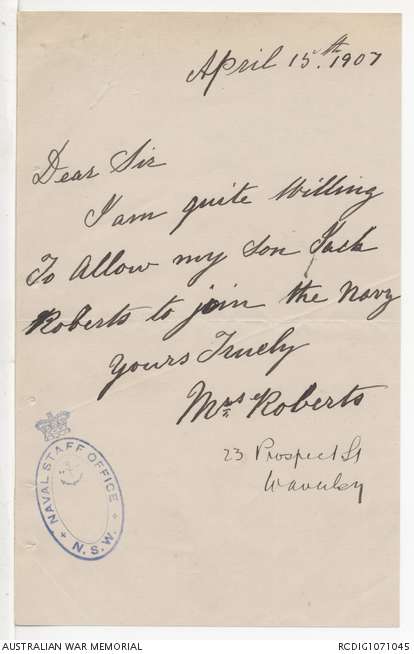 April 15.th 1907
Dear Sir
I am quite Willing
To Allow my Son Jack
Roberts to join the Navy
Yours Truely
Mrs Roberts
23 Prospect St
Waverley
NAVAL STAFF OFFICE
N.S.W.
AUSTRALIAN WAR MEMORIAL
RCDIG1071045